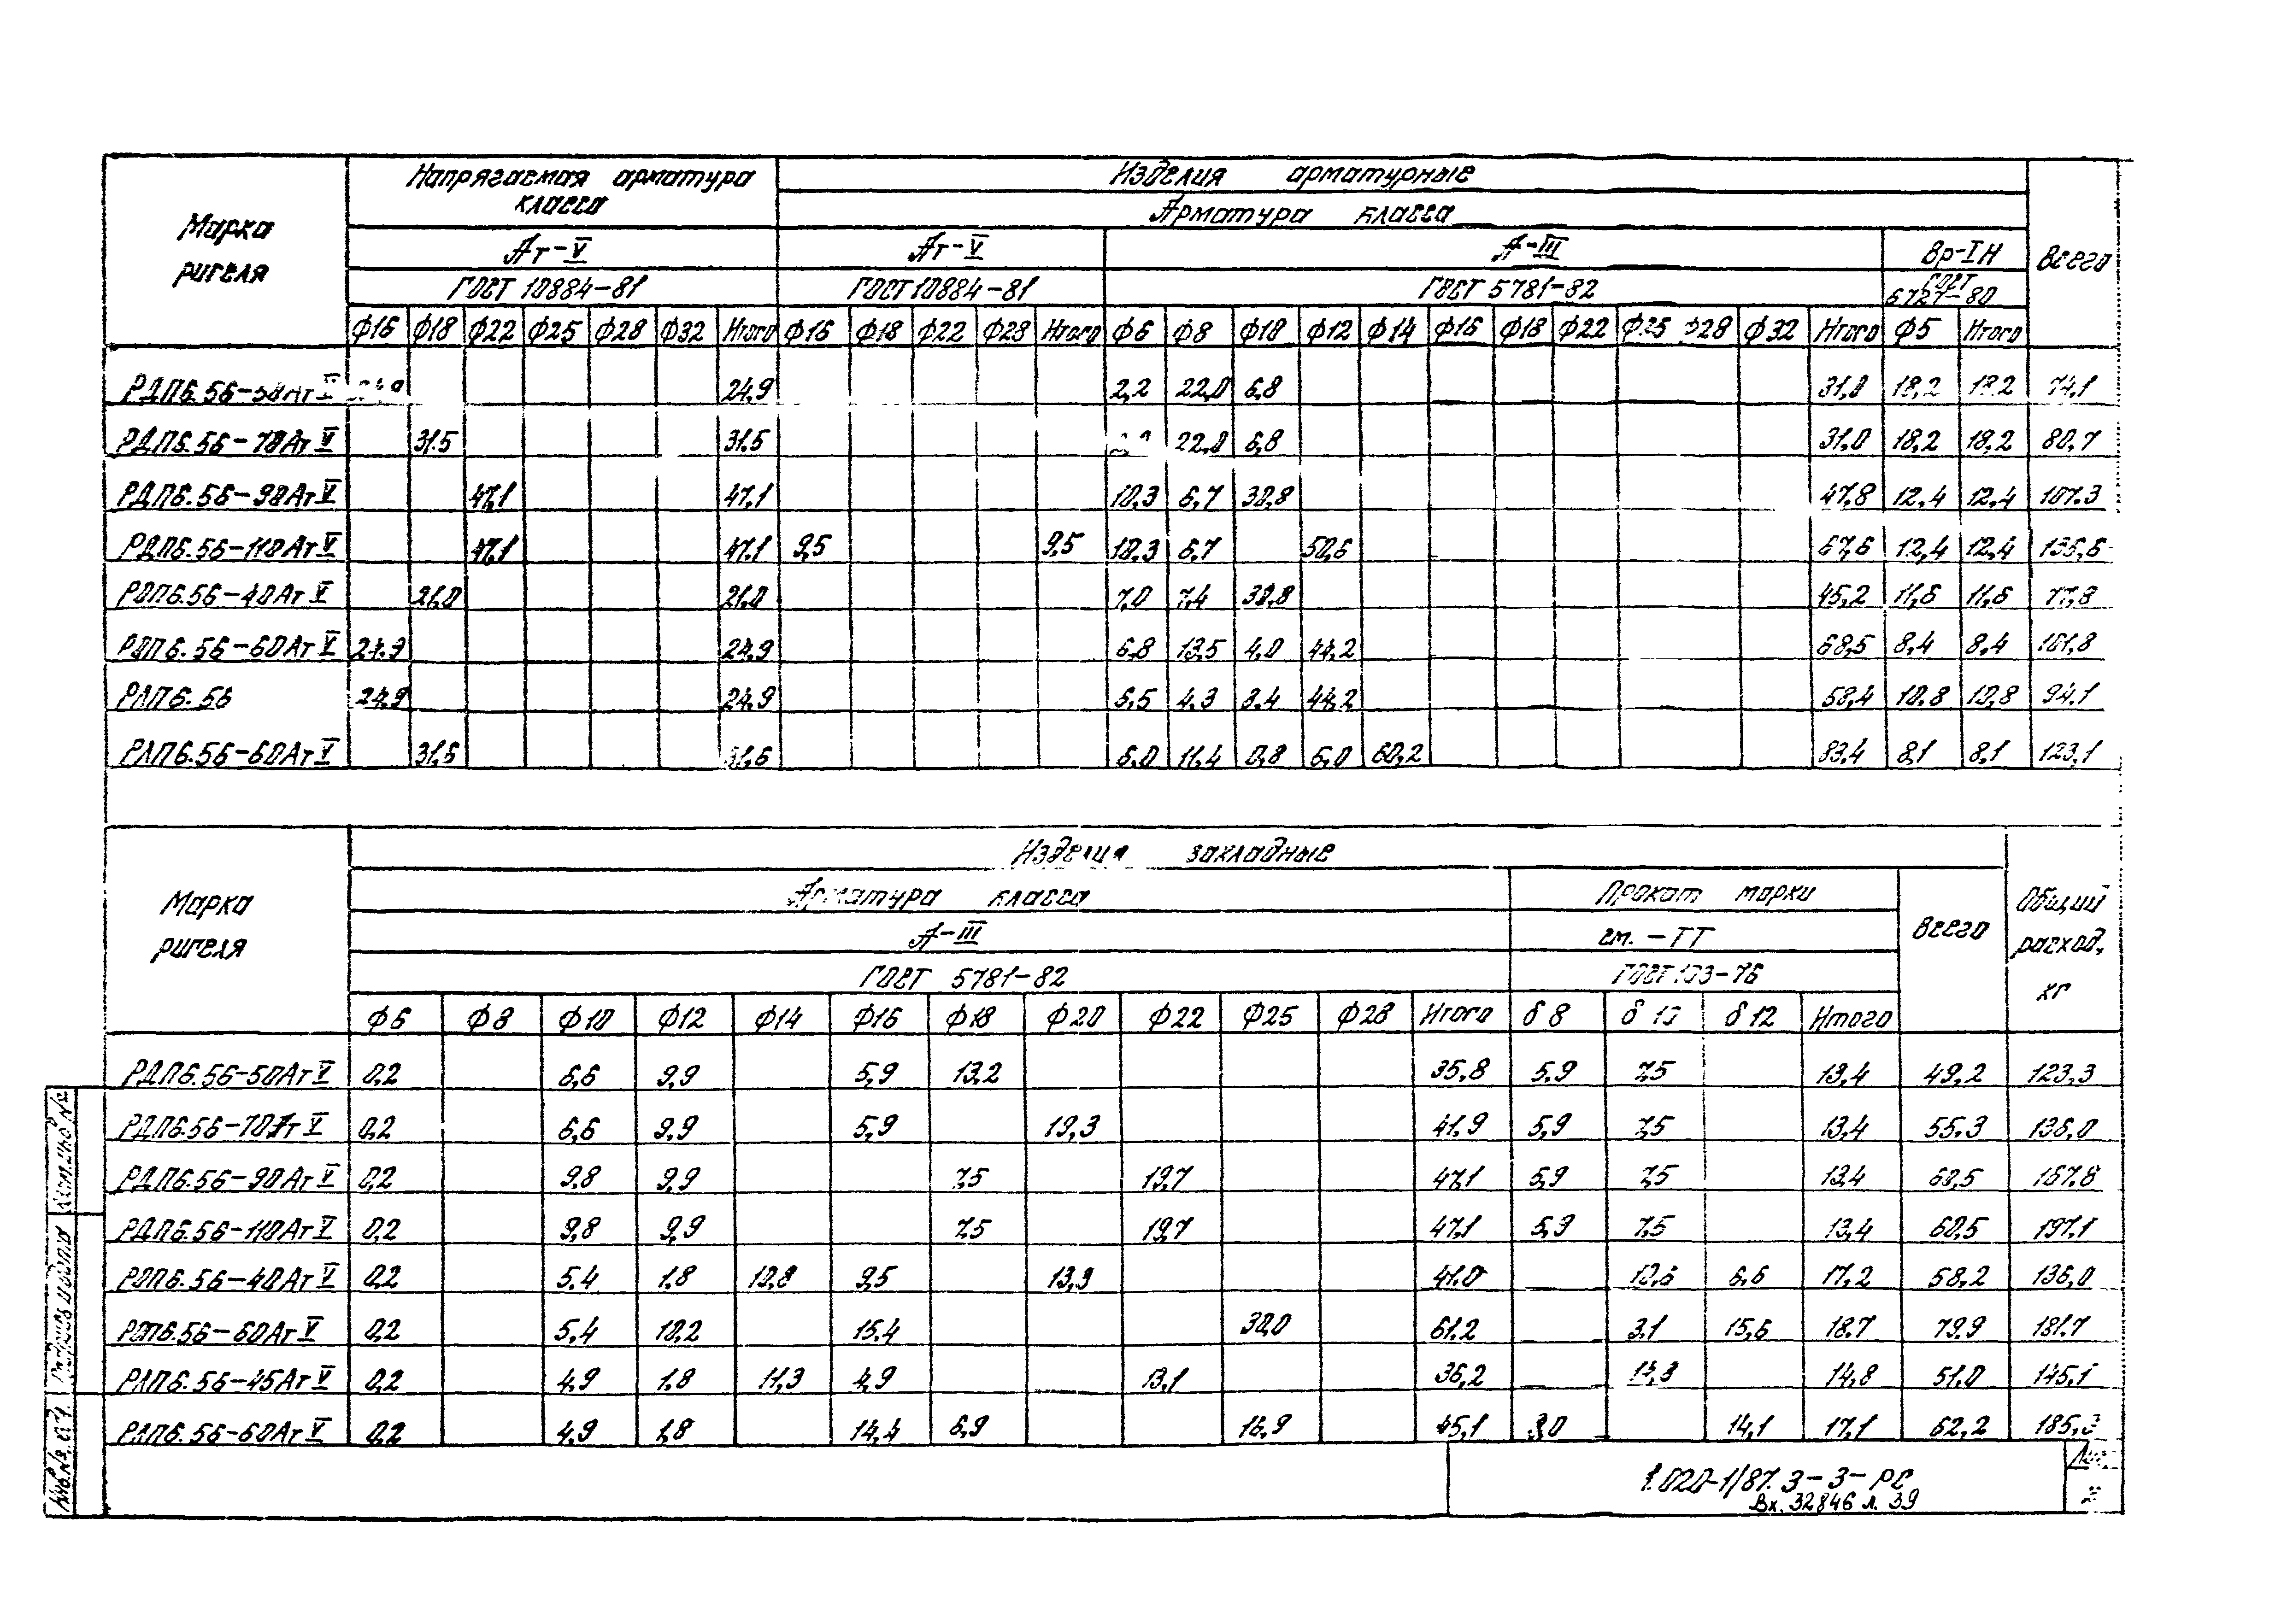 Марка ригеля | Напрягаемая арматура класса | Изделия арматурные | Всего
Арматура класса
Ат-V | Ат-V | А-III | Вр-IН
ГОСТ 10884-81 | ГОСТ 10884-81 | ГОСТ 5781-82 | ГОСТ 6727-80
Ф16 Ф18 Ф22 Ф25 Ф28 Ф32 Итого Ф16 Ф18 Ф22 Ф28 Итого Ф6 Ф8 Ф10 Ф12 Ф14 Ф16 Ф18 Ф22 Ф25 Ф28 Ф32 Итого Ф5 Итого
РДП6.56-50АтV 24.9 24.9 2,2 22,0 6,8 31,0 18,2 18,2 74,1
РДП6.56-70АтV 31.5 31.5 22,0 6,8 31,0 18,2 18,2 80,7
РДП6.56-90АтV 47,1 47,1 10,3 6,7 30,8 47,8 12,4 12,4 107.3
РДП6.56-110АтV 47,1 47,1 9,5 9,5 10,3 6,7 50,6 67,6 12,4 12,4 136,6
РОП6.56-40АтV 21,0 21,0 7,0 7,4 30,8 45,2 11,6 11,6 77,8
РОП6.56-60АтV 24.9 24.9 6,8 13,5 4,0 44,2 68,5 8,4 8,4 101,8
РЛП6.56 24.9 24.9 6,5 4,3 3.4 44,2 58,4 10.8 10,8 94.1
РЛП6.56-60АтV 31,6 31,6 6,0 11,4 0,8 5,0 60,2 83,4 8,1 8,1 123,1
Марка ригеля | Изделия закладные | Общий расход, кг
Арматура класса | Прокат марки | Всего
А-III | ст. -ТТ
ГОСТ 5781-82 | ГОСТ 103-76
Ф6 Ф8 Ф10 Ф12 Ф14 Ф16 Ф18 Ф20 Ф22 Ф25 Ф28 Итого δ8 δ10 δ12 Итого
РДП6.56-50АтV 0,2 6,6 9,9 5,9 13,2 35,8 5,9 7,5 13,4 49,2 123,3
РДП6.56-70АтV 0,2 6,6 9,9 5,9 19,3 41,9 5,9 7,5 13,4 55.3 136,0
РДП6.56-90АтV 0,2 9,8 9,9 7,5 19,7 47,1 5,9 7,5 13,4 60,5 167.8
РДП6.56-110АтV 0,2 9,8 9,9 7,5 19,7 47,1 5,9 7,5 13,4 60,5 197,1
РОП6.56-40АтV 0,2 5,4 1.8 10,8 9,5 13,3 41.0 10,6 6,6 17,2 58,2 136,0
РОП6.56-60АтV 0,2 5.4 10,2 15.4 30,0 61,2 3,1 15,6 18.7 79,9 181.7
РЛП6.56-45АтV 0,2 4,9 1.8 11,3 4,9 13,1 36,2 14,8 14,8 51.0 145,1
РЛП6.56-60АтV 0,2 4,9 1,8 14,4 6,9 16,9 45,1 3,0 14,1 17,1 62,2 185,3
1.020-1/87. 3-3- РС
Вх. 32846 л. 39
Инв.№ подл. Подпись и дата Взам.инв.№
Лист
2